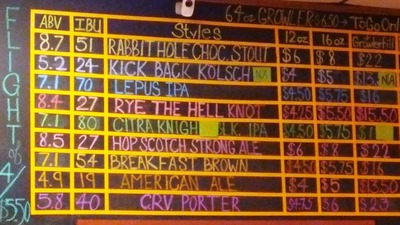 64oz GROWLERS $6.50 → To Go Only
ABV IBU Styles 12oz 16oz Growler Fill
8.7 51 RABBIT HOLE CHOC. STOUT $6 $8 $22
5.2 24 KICK BACK KOLSCH NA $4 $5 NA
7.1 70 LEPUS IPA $4.50 $5.75 $16
8.4 27 RYE THE HELL KNOT $4.75 $5.50 $15.50
7.1 80 CITRA KNIGH BLK. IPA $4.50 $5.75
8.5 27 HOP SCOTCH STRONG ALE $6 $8 $22
7.1 54 BREAKFAST BROWN $4.50 $5.75 $16
4.9 19 AMERICAN ALE $4 $5 $13.50
5.8 40 CRV PORTER $4.75 $6 $23
FLIGHT of 4/ $5.50